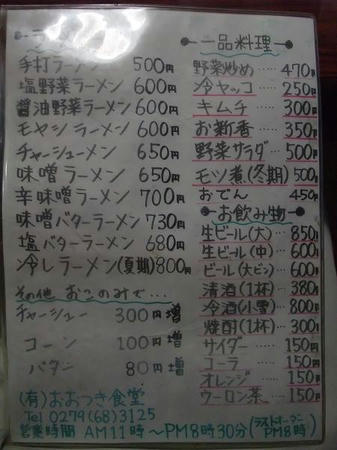 手打ラーメン 500円
塩野菜ラーメン 600円
醤油野菜ラーメン 600円
モヤシラーメン 600円
チャーシューメン 650円
味噌ラーメン 650円
辛味噌ラーメン 700円
味噌バターラーメン 730円
塩バターラーメン 680円
冷しラーメン(夏期) 800円
その他 おこのみで…
チャーシュー 300円増
コーン 100円増
バター 80円増
(有)おおつき食堂
Tel 0279(68)3125
営業時間 AM11時〜PM8時30分(ラストオーダー PM8時)
一品料理
野菜炒め ‥‥ 470円
冷ヤッコ ‥‥ 250円
キムチ ‥‥ 300円
お新香 ‥‥ 350円
野菜サラダ ‥ 500円
モツ煮(冬期) 500円
おでん 450円
お飲み物
生ビール(大) ‥ 850円
生ビール(中) ‥ 600円
ビール(大ビン) 600円
清酒(1杯) ‥ 380円
冷酒(小雪) ‥ 800円
焼酎(1杯) ‥ 300円
サイダー ‥‥ 150円
コーラ ‥‥ 150円
オレンジ ‥‥ 150円
ウーロン茶 ‥ 150円